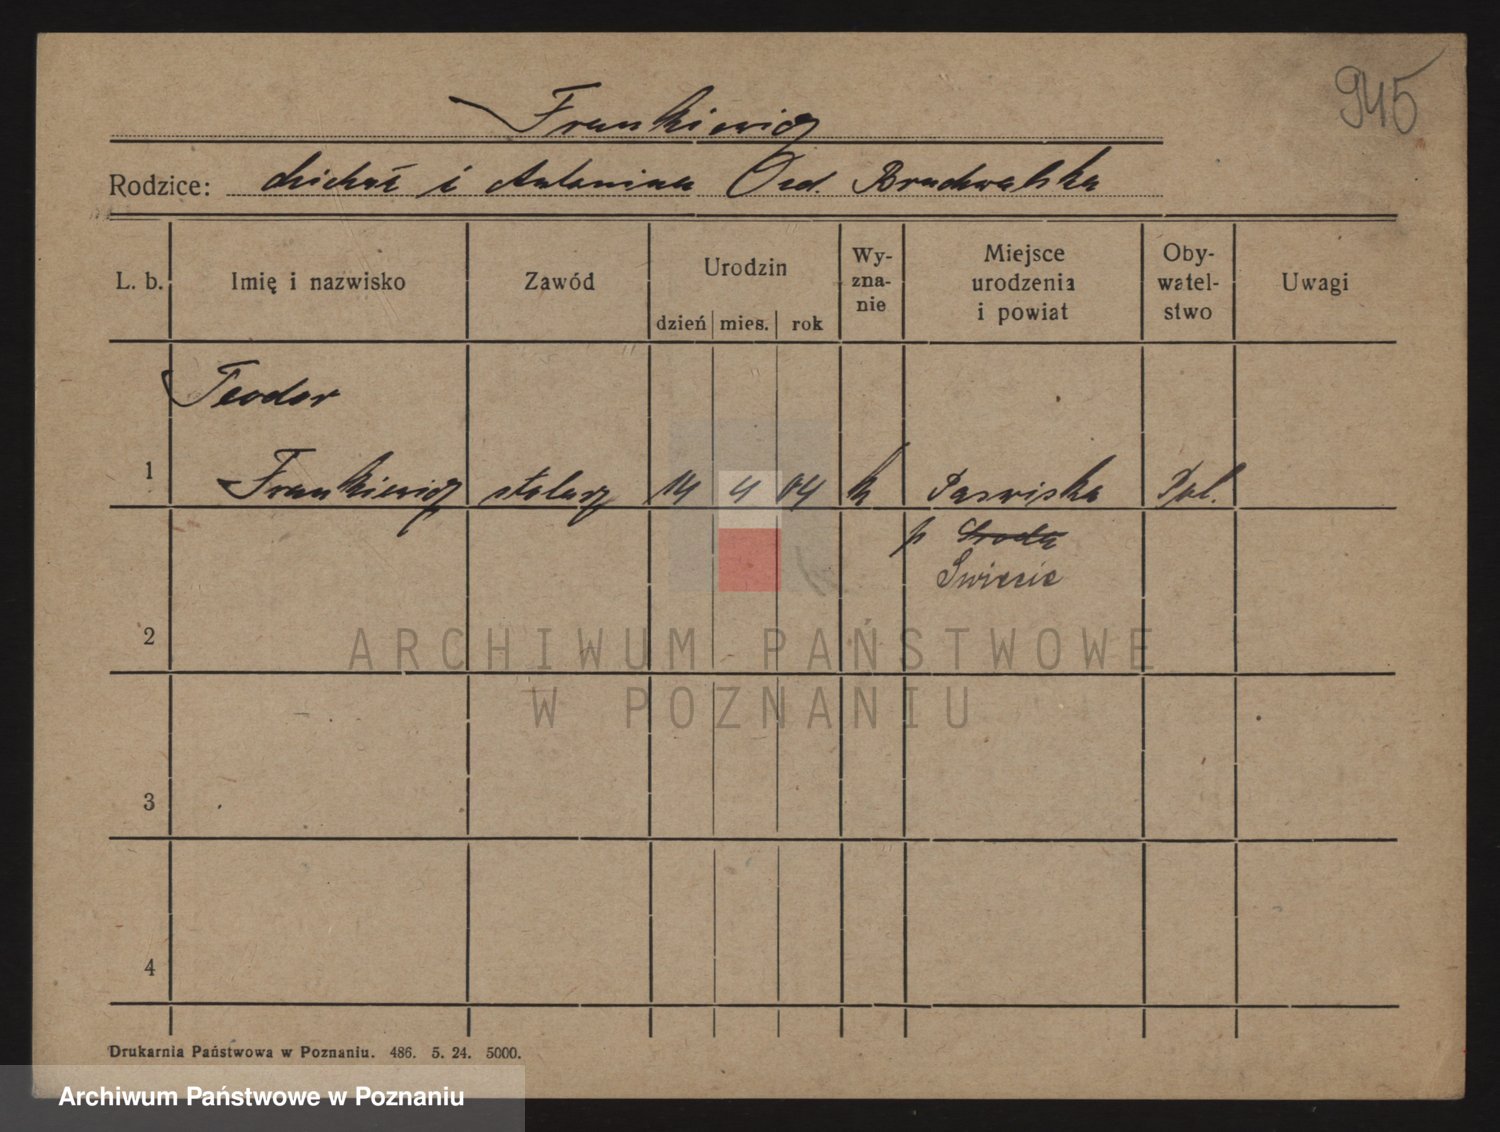 945
Frankiewicz
Rodzice: Michał i Antonina
L. b. Imię i nazwisko Zawód Urodzin dzień mies. rok Wy-zna-nie Miejsce urodzenia i powiat Oby-watel-stwo Uwagi
Teodor
1 Frankiewicz stolarz 14 4 04 k Pol.
p Środa
Świecie
2
3
4
Drukarnia Państwowa w Poznaniu. 486. 5. 24. 5000.
ARCHIWUM PAŃSTWOWE
W POZNANIU
Archiwum Państwowe w Poznaniu